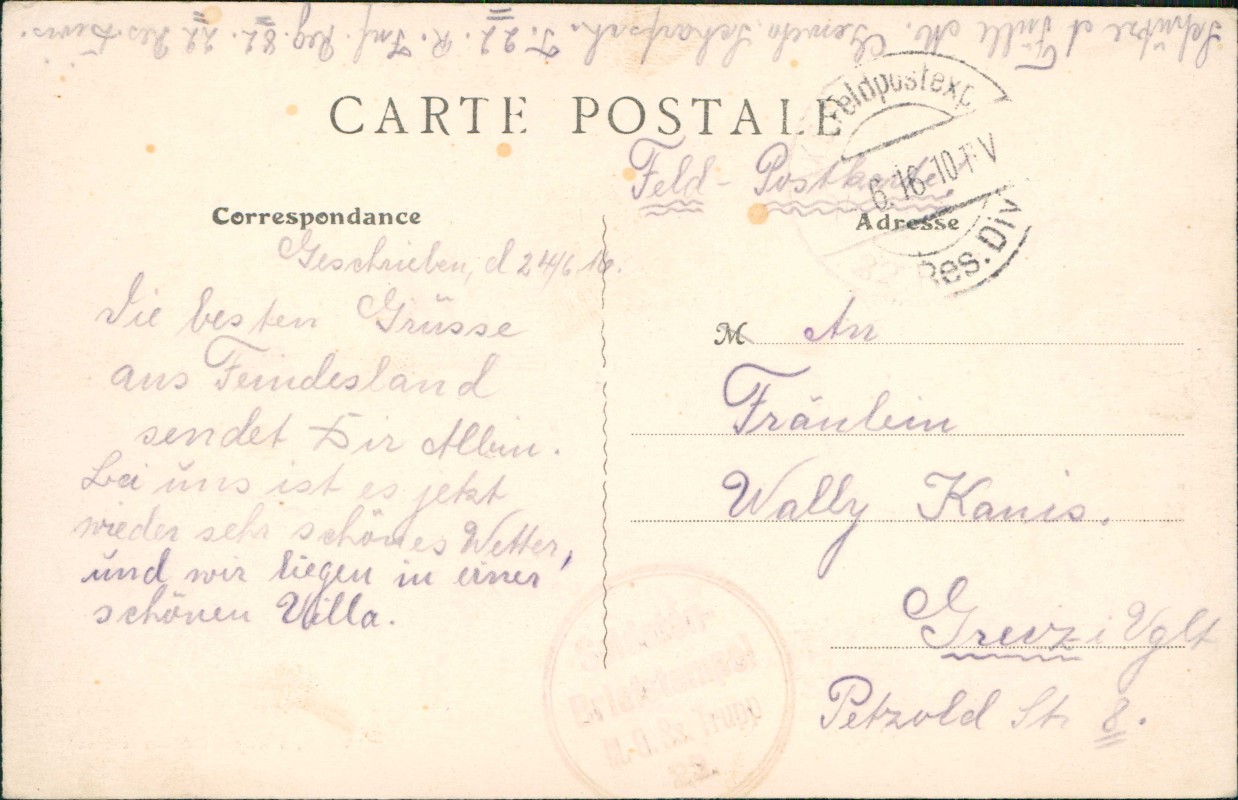 Schütze A. M. Gewehr Scharfsch. T. 22. R. Inf. Reg. 82. 22 Res. Divis.
CARTE POSTALE
Feld-Postkarte
Feldpostexp.
6.16.10-11V
Res. Div
Correspondance
Geschrieben, d 24/6 16.
Die besten Grüsse
aus Feindesland
sendet Dir Albin.
Bei uns ist es jetzt
wieder sehr schönes Wetter,
und wir liegen in einer
schönen Villa.
Adresse
M An
Fräulein
Wally Kanis.
Greiz i Vgtl
Petzold Str 8.
Soldaten-
Briefstempel
M. G. Ss. Trupp
22.